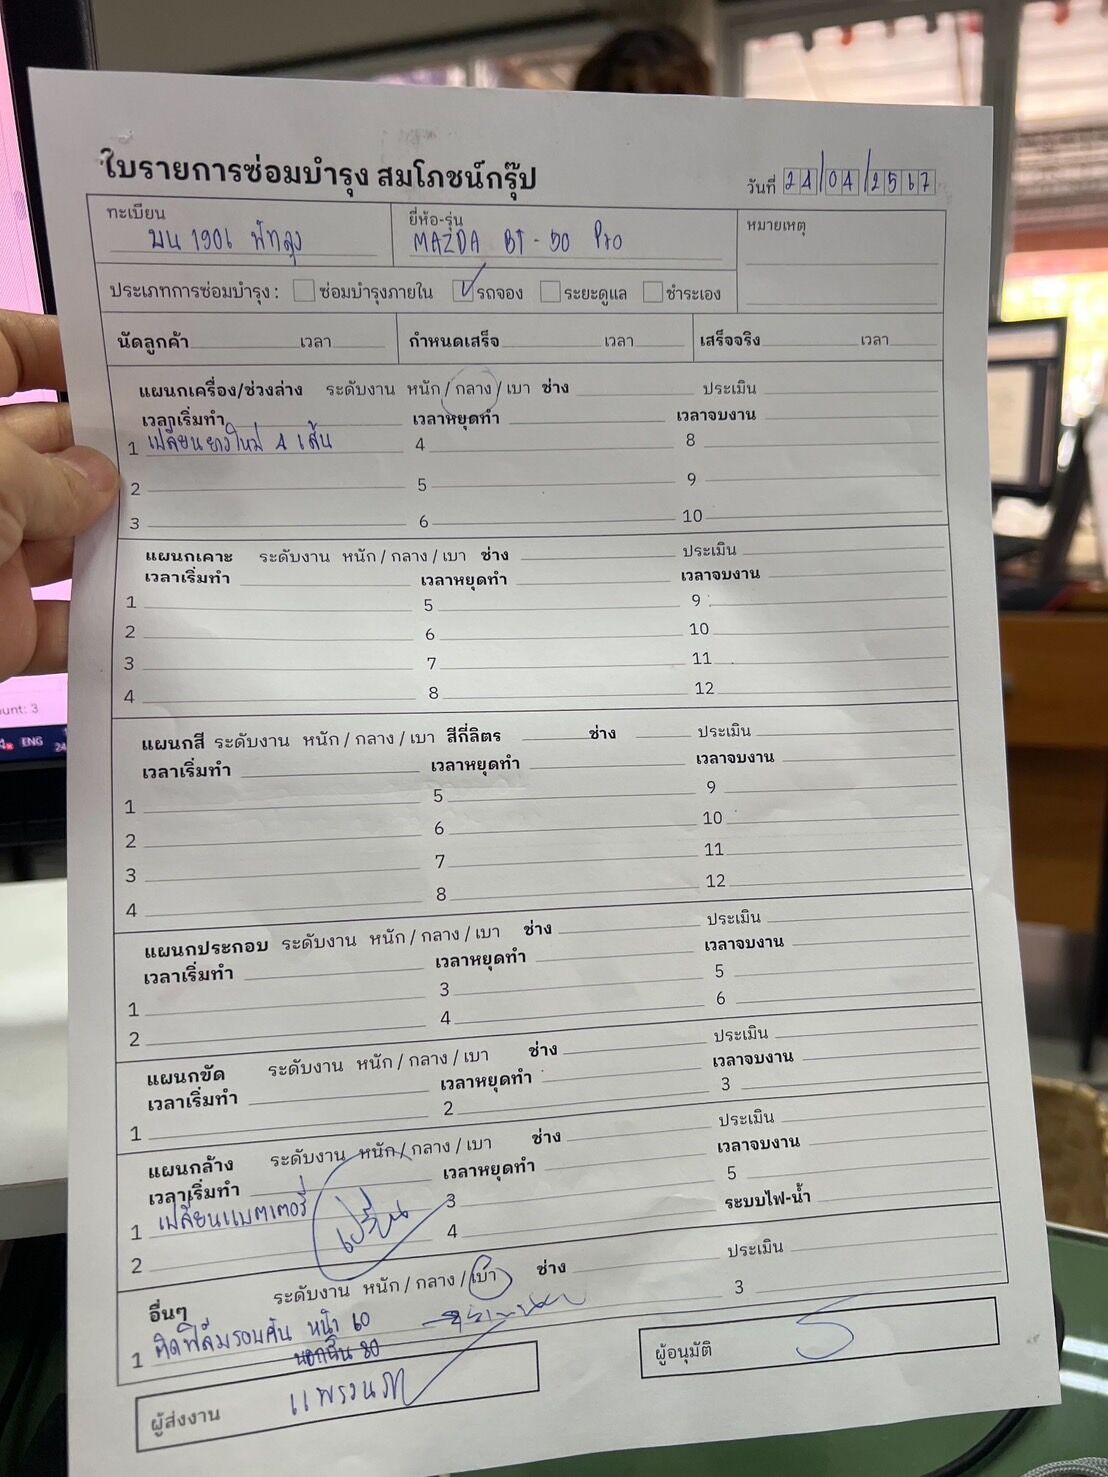 ใบรายการซ่อมบำรุง สมโภชน์กรุ๊ป
วันที่ 24/04/2567
ทะเบียน
บน 1901 พัทลุง
ยี่ห้อ-รุ่น
MAZDA BT-50 Pro
หมายเหตุ
ประเภทการซ่อมบำรุง : ซ่อมบำรุงภายใน รถจอง ระยะดูแล ชำระเอง
นัดลูกค้า เวลา กำหนดเสร็จ เวลา เสร็จจริง เวลา
แผนกเครื่อง/ช่วงล่าง ระดับงาน หนัก / กลาง / เบา ช่าง ประเมิน
เวลาเริ่มทำ เวลาหยุดทำ เวลาจบงาน
1 เปลี่ยนยางใหม่ 4 เส้น 4 8
2 5 9
3 6 10
แผนกเคาะ ระดับงาน หนัก / กลาง / เบา ช่าง ประเมิน
เวลาเริ่มทำ เวลาหยุดทำ เวลาจบงาน
1 5 9
2 6 10
3 7 11
4 8 12
แผนกสี ระดับงาน หนัก / กลาง / เบา สีกี่ลิตร ช่าง ประเมิน
เวลาเริ่มทำ เวลาหยุดทำ เวลาจบงาน
1 5 9
2 6 10
3 7 11
4 8 12
แผนกประกอบ ระดับงาน หนัก / กลาง / เบา ช่าง ประเมิน
เวลาเริ่มทำ เวลาหยุดทำ เวลาจบงาน
1 3 5
2 4 6
แผนกขัด ระดับงาน หนัก / กลาง / เบา ช่าง ประเมิน
เวลาเริ่มทำ เวลาหยุดทำ เวลาจบงาน
1 2 3
แผนกล้าง ระดับงาน หนัก / กลาง / เบา ช่าง ประเมิน
เวลาเริ่มทำ เวลาหยุดทำ เวลาจบงาน
1 เปลี่ยนแบตเตอรี่ 3 5
2 4 ระบบไฟ-น้ำ
อื่นๆ ระดับงาน หนัก / กลาง / เบา ช่าง ประเมิน
1 ติดฟิล์มรอบคัน หน้า 60 3
นอกนั้น 80
ผู้ส่งงาน แพรวนภา
ผู้อนุมัติ
unt: 3
ENG
24